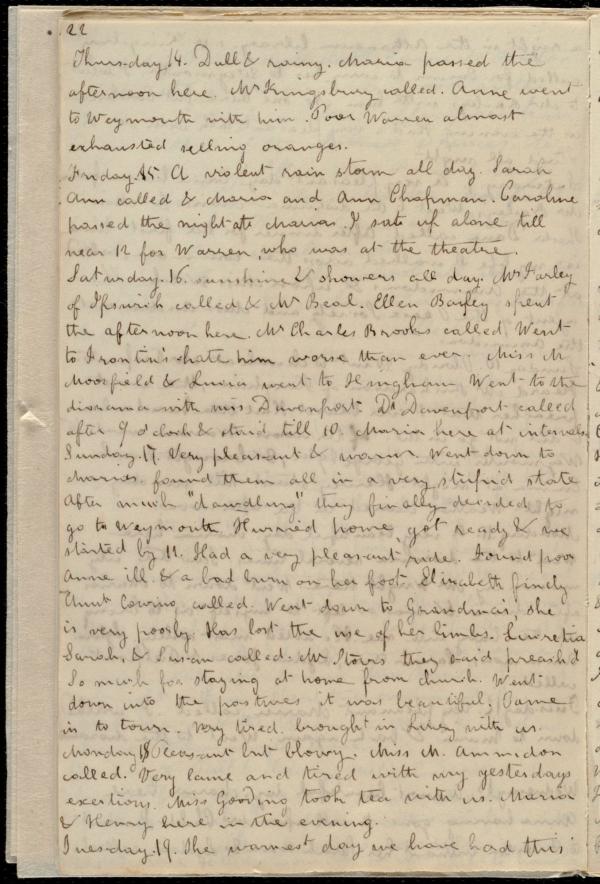 22
Thursday 14. Dull & rainy. Maria passed the
afternoon here. Mr Kingsbury called. Anne went
to Weymouth with him. Poor Warren almost
exhausted selling oranges.
Friday 15 A violent rain storm all day. Sarah
Ann called & Maria and Ann Chapman. Caroline
passed the night at Marias. I sate up alone till
near 12 for Warren, who was at the theatre.
Saturday. 16. sunshine & showers all day. Mr Farley
of Ipswich called & Mr Beal. Ellen Bailey spent
the afternoon here. Mr Charles Brooks called. Went
to Frontin's hate him worse than ever. Miss M
Moosfield & Luisa went to Hingham. Went to the
diorama with miss Davenport. Dr Davenport called
after 9 o'clock & staid till 10. Maria here at intervals
Sunday. 17. Very pleasant & warm. Went down to
Marias. found them all in a very stupid state
After much "dawdling" they finally decided to
go to Weymouth. Hurried home, got ready & we
started by 11. Had a very pleasant ride. Found poor
Anne ill & a bad burn on her foot. Elizabeth
Aunt Cowing called. Went down to Grandma's, she
is very poorly. Has lost the use of her limbs. Lucretia
Sarah, & Susan called. Mr Storrs they said preach'd
So much for staying at home from church. Went
down into the pastures it was beautiful. Came
in to town. Very tired. brought in Lucy with us.
Monday 18 Pleasant but blowy. Miss M. Ammidon
called. Very lame and tired with my yesterdays
exertions. Miss Gooding took tea with us. Maria
& Henry here in the evening.
Tuesday. 19. The warmest day we have had this